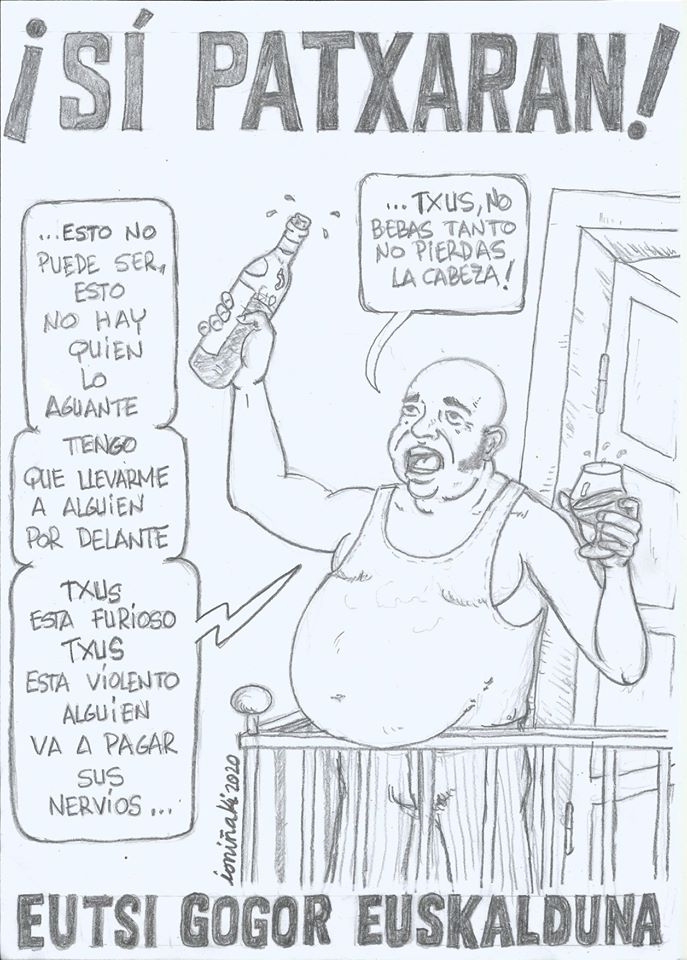 ¡SÍ PATXARAN!
...ESTO NO
PUEDE SER,
ESTO
NO HAY
QUIEN
LO
AGUANTE
TENGO
QUE LLEVARME
A ALGUIEN
POR DELANTE
TXUS
ESTA FURIOSO
TXUS
ESTA VIOLENTO
ALGUIEN
VA A PAGAR
SUS
NERVIOS...
...TXUS, NO
BEBAS TANTO
NO PIERDAS
LA CABEZA!
ioniñaki 2020
EUTSI GOGOR EUSKALDUNA